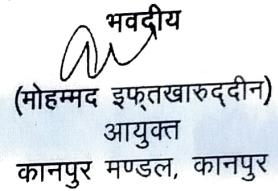 भवदीय
(मोहम्मद इफ्तखारुद्दीन)
आयुक्त
कानपुर मण्डल, कानपुर